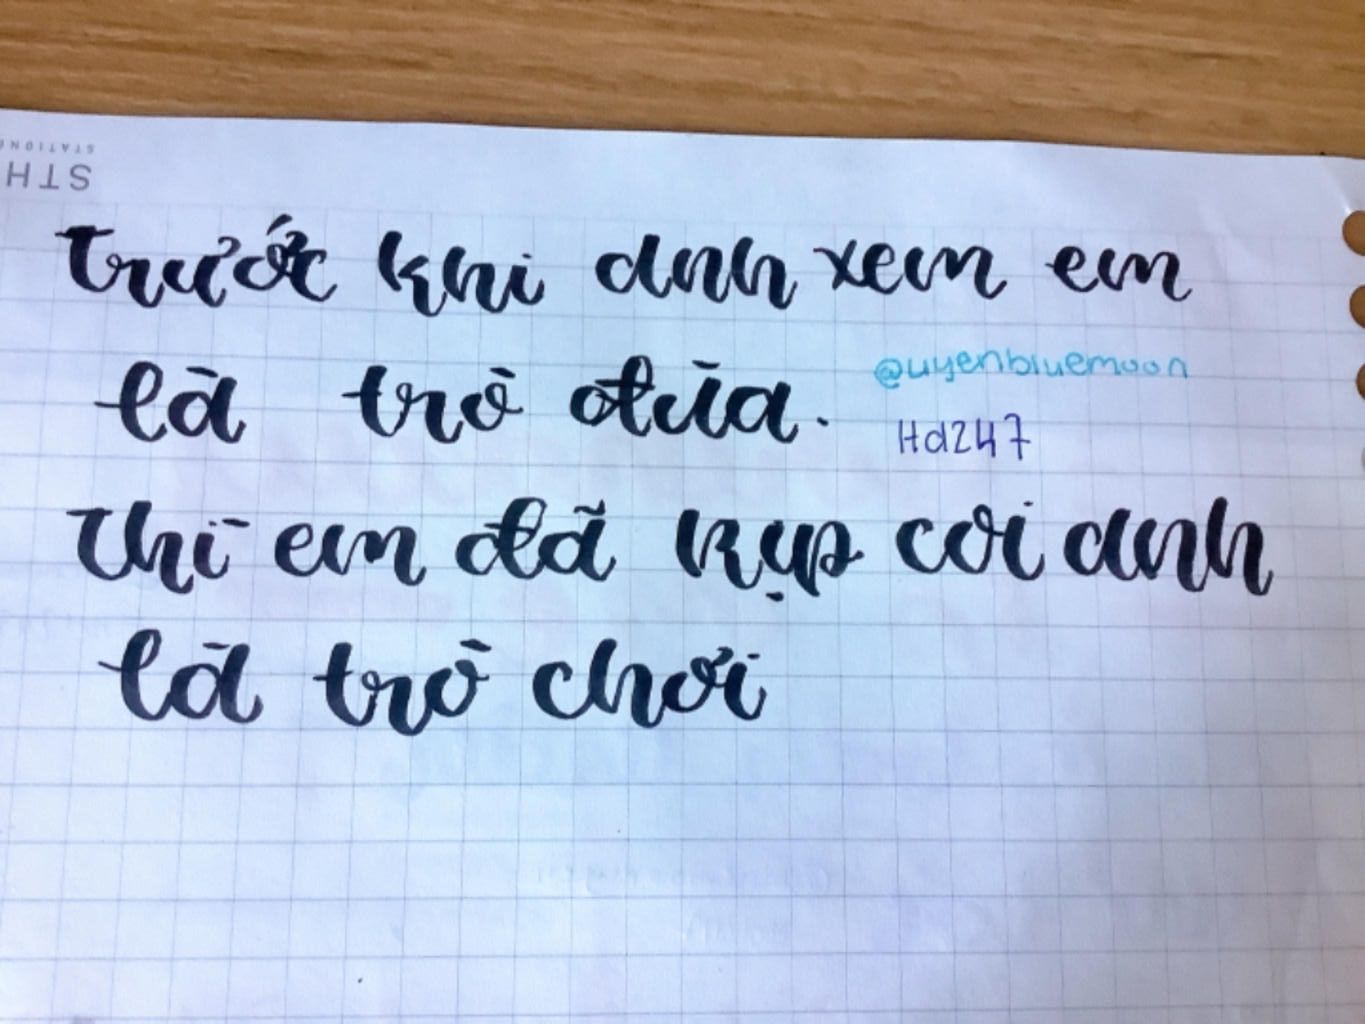 STATIONE
STH
trước khi anh xem em
là trò đùa.
@uyenbluemoon
Hd247
thì em đã kịp coi anh
là trò chơi